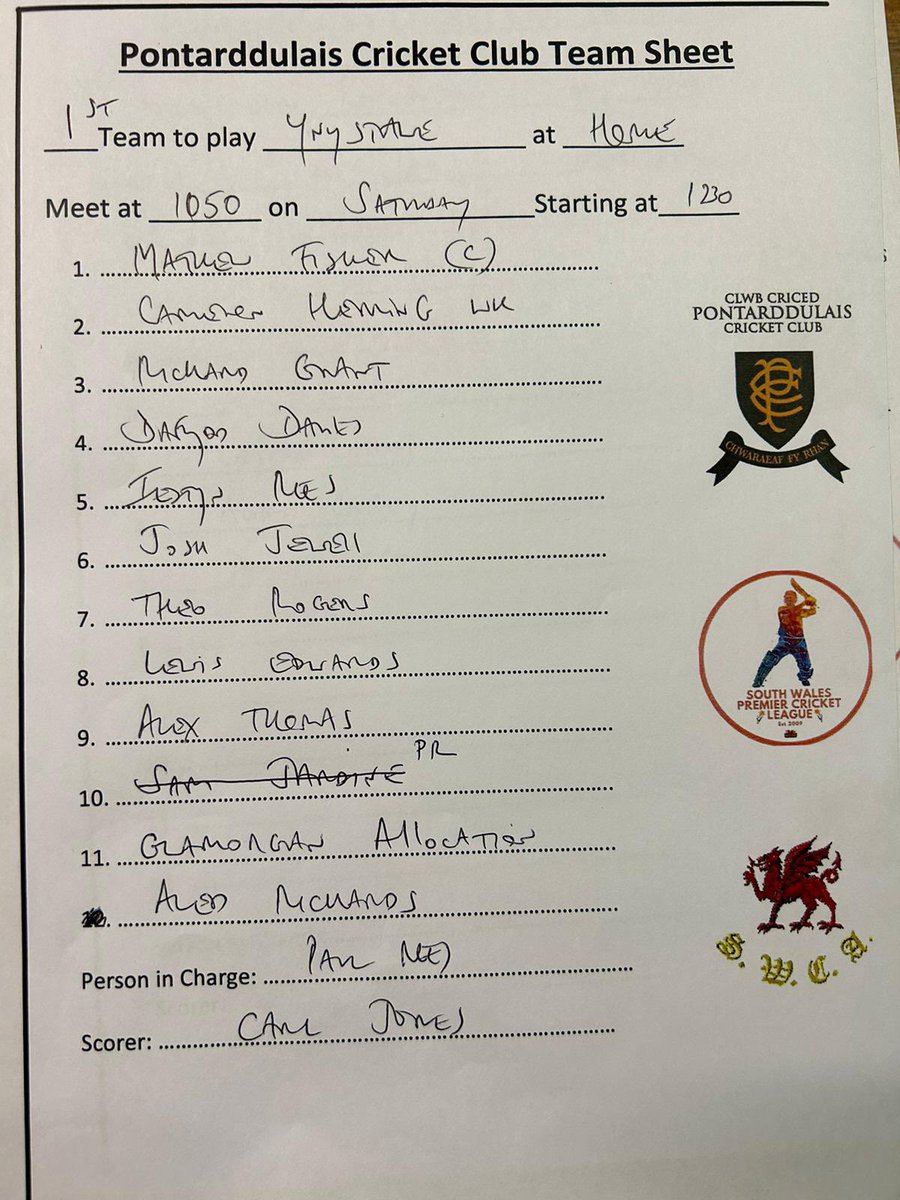 Pontarddulais Cricket Club Team Sheet
1ST Team to play YNYSTAWE at HOME
Meet at 1050 on SATURDAY Starting at 1230
1. MATHEW FISHER (C)
2. CAMERON HEMING WK
3. RICHARD GRANT
4. DAVIES
5. IESTYN REES
6. JOSH JEWELL
7. THEO ROGERS
8. LEWIS EDWARDS
9. ALEX THOMAS
10. SAM JARDINE PR
11. GLAMORGAN AllOCATION
ALED RICHARDS
Person in Charge: PAUL REES
Scorer: CARL JONES
CLWB CRICED
PONTARDDULAIS
CRICKET CLUB
CHWARAEAF FY RHAN
SOUTH WALES
PREMIER CRICKET
LEAGUE
Est 2009
S.W.C.A.